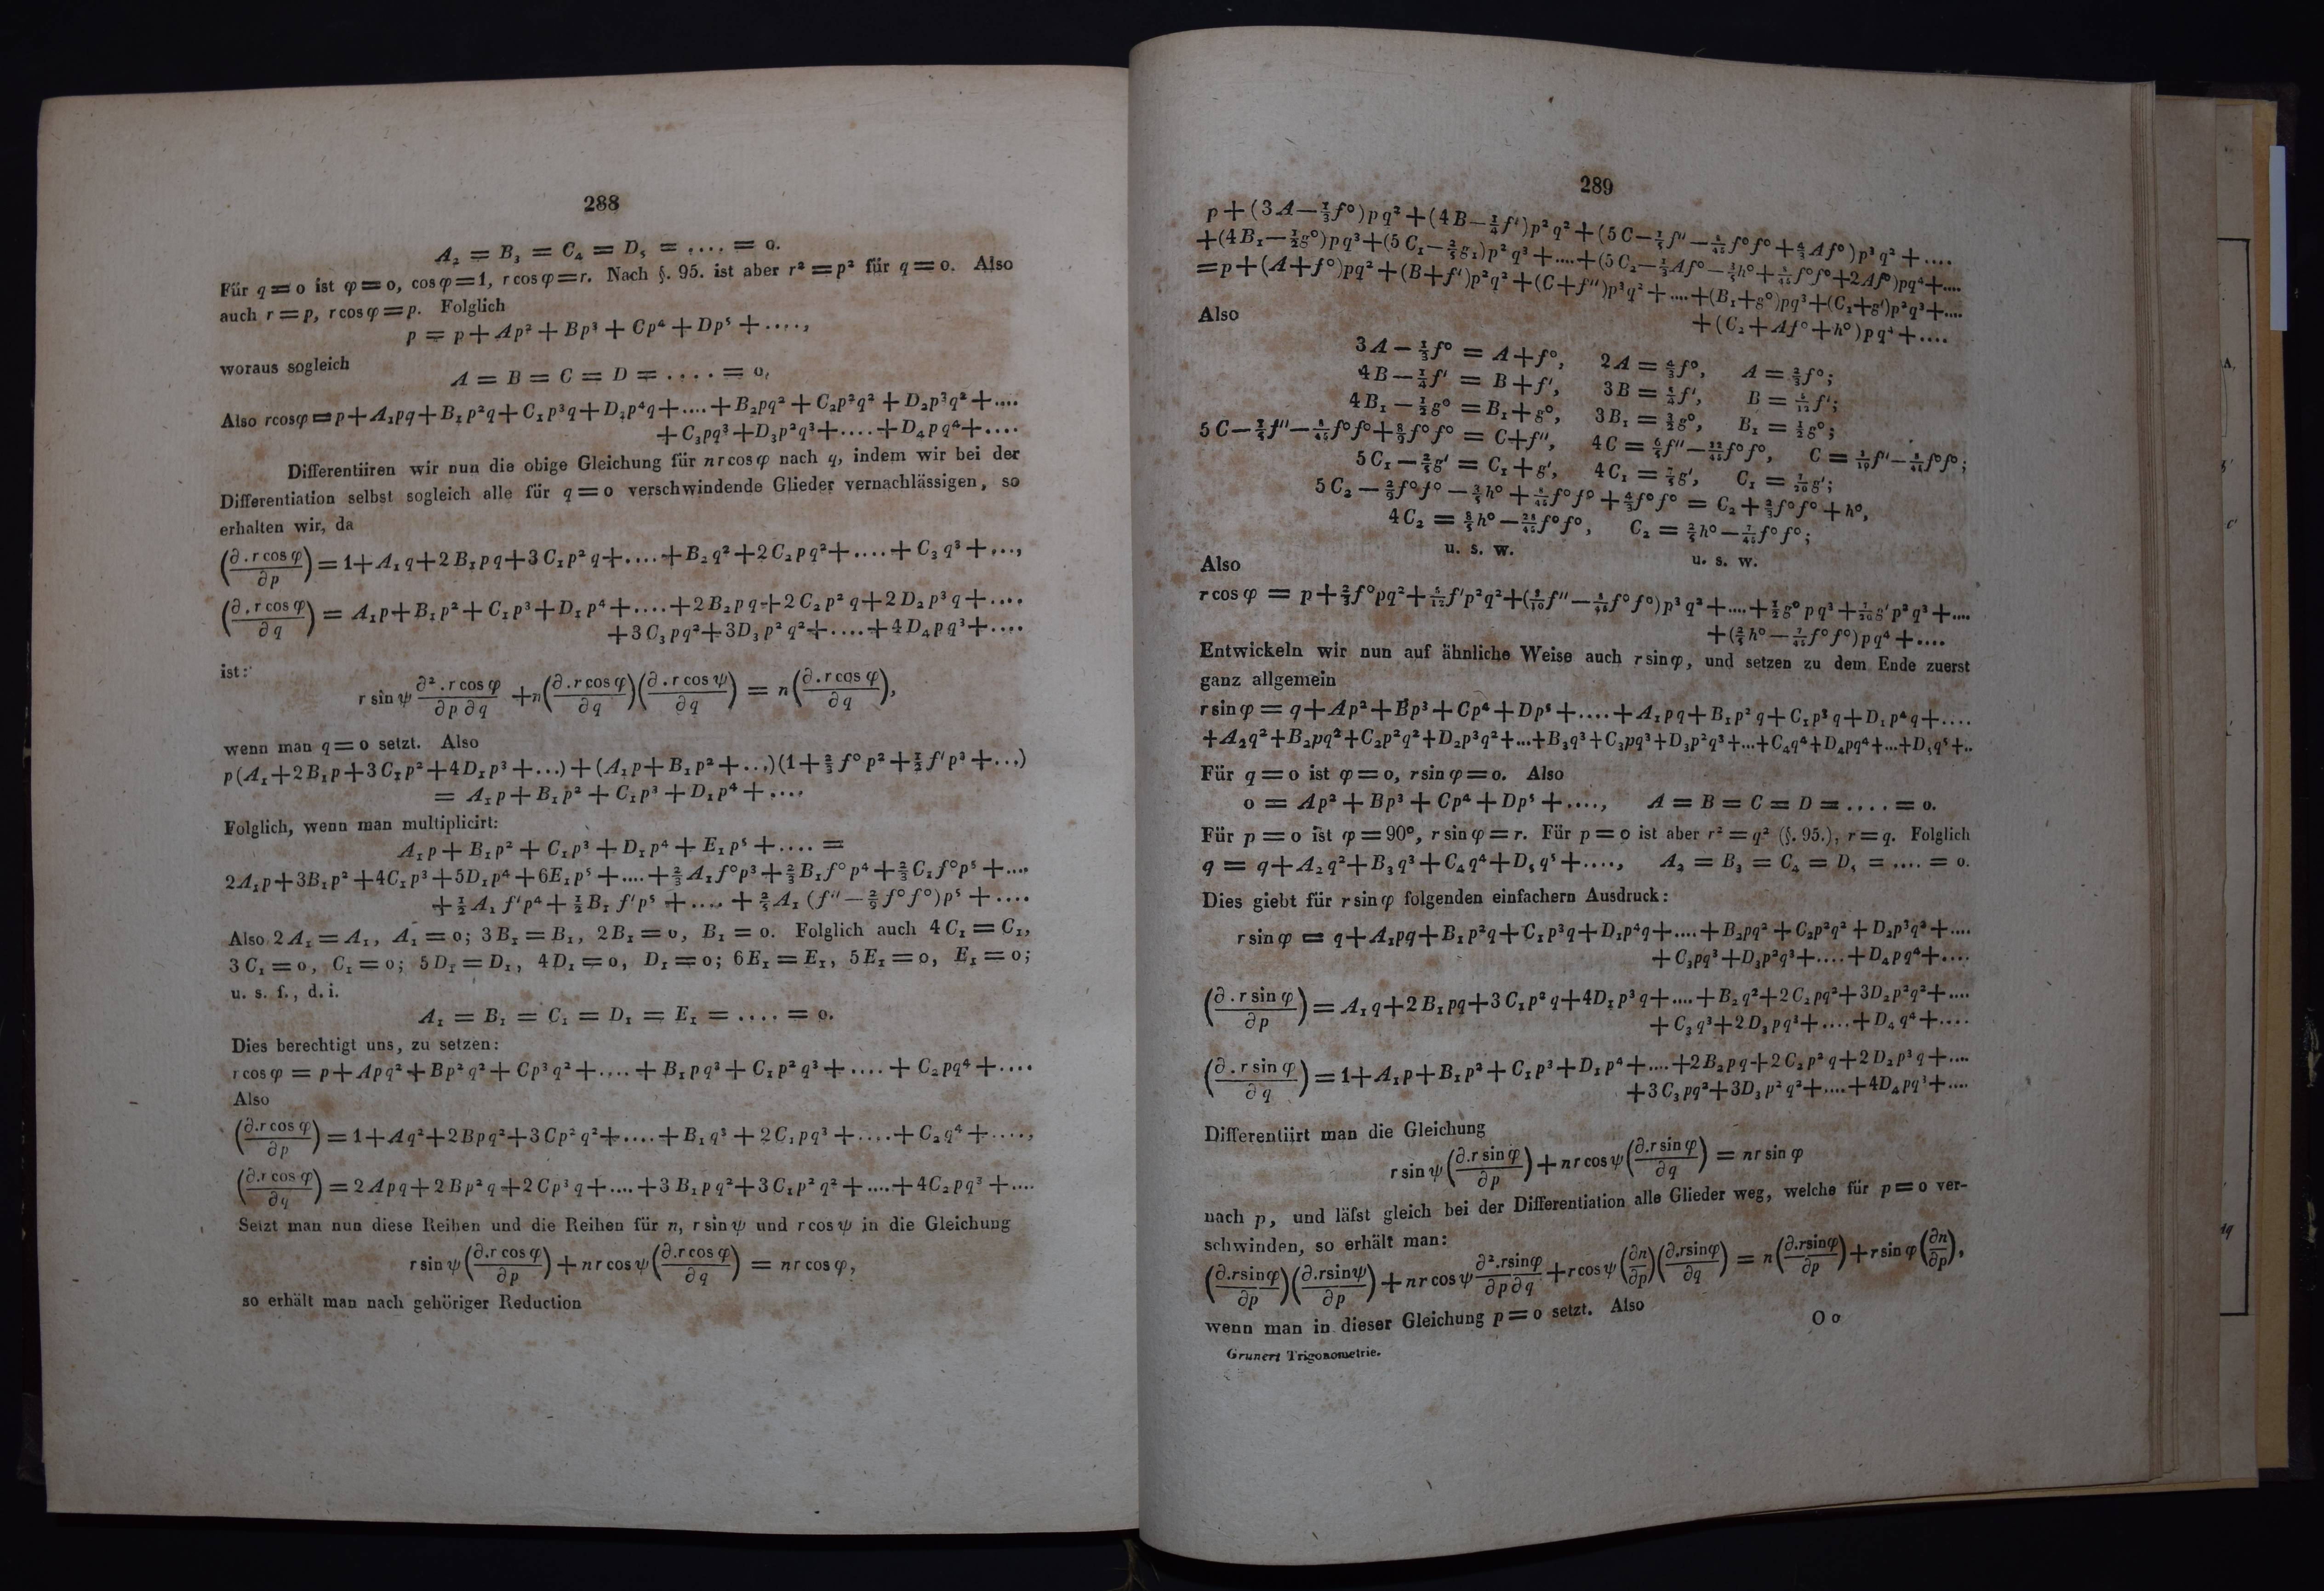 288
A₂ = B₃ = C₄ = D₅ = .... = 0.
Für q = 0 ist φ = 0, cos φ = 1, r cos φ = r. Nach §. 95. ist aber r² = p² für q = 0. Also
auch r = p, r cos φ = p. Folglich
p = p + Ap² + Bp³ + Cp⁴ + Dp⁵ + ....,
woraus sogleich
A = B = C = D = .... = 0,
Also r cos φ = p + A₁pq + B₁p²q + C₁p³q + D₁p⁴q + .... + B₂pq² + C₂p²q² + D₂p³q² + ....
+ C₃pq³ + D₃p²q³ + .... + D₄pq⁴ + ....
Differentiiren wir nun die obige Gleichung für nr cos φ nach q, indem wir bei der
Differentiation selbst sogleich alle für q = 0 verschwindende Glieder vernachlässigen, so
erhalten wir, da
(∂.r cos φ / ∂p) = 1 + A₁q + 2B₁pq + 3C₁p²q + .... + B₂q² + 2C₂pq² + .... + C₃q³ + ...,
(∂.r cos φ / ∂q) = A₁p + B₁p² + C₁p³ + D₁p⁴ + .... + 2B₂pq + 2C₂p²q + 2D₂p³q + ....
+ 3C₃pq² + 3D₃p²q² + .... + 4D₄pq³ + ....
ist:
r sin ψ ∂².r cos φ / ∂p ∂q + n (∂.r cos φ / ∂q) (∂.r cos ψ / ∂q) = n (∂.r cos φ / ∂q),
wenn man q = 0 setzt. Also
p(A₁ + 2B₁p + 3C₁p² + 4D₁p³ + ...) + (A₁p + B₁p² + ...)(1 + ⅔f°p² + ½f′p³ + ...)
= A₁p + B₁p² + C₁p³ + D₁p⁴ + ....
Folglich, wenn man multiplicirt:
A₁p + B₁p² + C₁p³ + D₁p⁴ + E₁p⁵ + .... =
2A₁p + 3B₁p² + 4C₁p³ + 5D₁p⁴ + 6E₁p⁵ + .... + ⅔A₁f°p³ + ⅔B₁f°p⁴ + ⅔C₁f°p⁵ + ....
+ ½A₁f′p⁴ + ½B₁f′p⁵ + .... + ⅖A₁(f″ − 2/9 f°f°)p⁵ + ....
Also 2A₁ = A₁, A₁ = 0; 3B₁ = B₁, 2B₁ = 0, B₁ = 0. Folglich auch 4C₁ = C₁,
3C₁ = 0, C₁ = 0; 5D₁ = D₁, 4D₁ = 0, D₁ = 0; 6E₁ = E₁, 5E₁ = 0, E₁ = 0;
u. s. f., d. i.
A₁ = B₁ = C₁ = D₁ = E₁ = .... = 0.
Dies berechtigt uns, zu setzen:
r cos φ = p + Apq² + Bp²q² + Cp³q² + .... + B₁pq³ + C₁p²q³ + .... + C₂pq⁴ + ....
Also
(∂.r cos φ / ∂p) = 1 + Aq² + 2Bpq² + 3Cp²q² + .... + B₁q³ + 2C₁pq³ + .... + C₂q⁴ + ....,
(∂.r cos φ / ∂q) = 2Apq + 2Bp²q + 2Cp³q + .... + 3B₁pq² + 3C₁p²q² + .... + 4C₂pq³ + ....
Setzt man nun diese Reihen und die Reihen für n, r sin ψ und r cos ψ in die Gleichung
r sin ψ (∂.r cos φ / ∂p) + nr cos ψ (∂.r cos φ / ∂q) = nr cos φ,
so erhält man nach gehöriger Reduction
289
p + (3A − ⅓f°)pq² + (4B − ¼f′)p²q² + (5C − ⅕f″ − 8/45 f°f° + 4/3 Af°)p³q² + ....
+ (4B₁ − ½g°)pq³ + (5C₁ − ⅖g₁)p²q³ + .... + (5C₂ − ⅓Af° − ⅗h° + 8/45 f°f° + 2Af°)pq⁴ + ....
= p + (A + f°)pq² + (B + f′)p²q² + (C + f″)p³q² + .... + (B₁ + g°)pq³ + (C₁ + g′)p²q³ + ....
+ (C₂ + Af° + h°)pq⁴ + ....
Also
3A − ⅓f° = A + f°, 2A = 4/3 f°, A = ⅔f°;
4B − ¼f′ = B + f′, 3B = 5/4 f′, B = 5/12 f′;
4B₁ − ½g° = B₁ + g°, 3B₁ = 3/2 g°, B₁ = ½g°;
5C − ⅕f″ − 8/45 f°f° + 8/9 f°f° = C + f″, 4C = 6/5 f″ − 32/45 f°f°, C = 3/10 f″ − 8/45 f°f°;
5C₁ − ⅖g′ = C₁ + g′, 4C₁ = 7/5 g′, C₁ = 7/20 g′;
5C₂ − 2/9 f°f° − ⅗h° + 8/45 f°f° + 4/3 f°f° = C₂ + ⅔f°f° + h°,
4C₂ = 8/5 h° − 28/45 f°f°, C₂ = ⅖h° − 7/45 f°f°;
u. s. w. u. s. w.
Also
r cos φ = p + ⅔f°pq² + 5/12 f′p²q² + (3/10 f″ − 8/45 f°f°)p³q² + .... + ½g°pq³ + 7/20 g′p²q³ + ....
+ (⅖h° − 7/45 f°f°)pq⁴ + ....
Entwickeln wir nun auf ähnliche Weise auch r sin φ, und setzen zu dem Ende zuerst
ganz allgemein
r sin φ = q + Ap² + Bp³ + Cp⁴ + Dp⁵ + .... + A₁pq + B₁p²q + C₁p³q + D₁p⁴q + ....
+ A₂q² + B₂pq² + C₂p²q² + D₂p³q² + ... + B₃q³ + C₃pq³ + D₃p²q³ + ... + C₄q⁴ + D₄pq⁴ + ... + D₅q⁵ + ..
Für q = 0 ist φ = 0, r sin φ = 0. Also
0 = Ap² + Bp³ + Cp⁴ + Dp⁵ + ...., A = B = C = D = .... = 0.
Für p = 0 ist φ = 90°, r sin φ = r. Für p = 0 ist aber r² = q² (§. 95.), r = q. Folglich
q = q + A₂q² + B₃q³ + C₄q⁴ + D₅q⁵ + ...., A₂ = B₃ = C₄ = D₅ = .... = 0.
Dies giebt für r sin φ folgenden einfachern Ausdruck:
r sin φ = q + A₁pq + B₁p²q + C₁p³q + D₁p⁴q + .... + B₂pq² + C₂p²q² + D₂p³q² + ....
+ C₃pq³ + D₃p²q³ + .... + D₄pq⁴ + ....
(∂.r sin φ / ∂p) = A₁q + 2B₁pq + 3C₁p²q + 4D₁p³q + .... + B₂q² + 2C₂pq² + 3D₂p²q² + ....
+ C₃q³ + 2D₃pq³ + .... + D₄q⁴ + ....
(∂.r sin φ / ∂q) = 1 + A₁p + B₁p² + C₁p³ + D₁p⁴ + .... + 2B₂pq + 2C₂p²q + 2D₂p³q + ....
+ 3C₃pq² + 3D₃p²q² + .... + 4D₄pq³ + ....
Differentiirt man die Gleichung
r sin ψ (∂.r sin φ / ∂p) + nr cos ψ (∂.r sin φ / ∂q) = nr sin φ
nach p, und läfst gleich bei der Differentiation alle Glieder weg, welche für p = 0 ver-
schwinden, so erhält man:
(∂.r sin φ / ∂p) (∂.r sin ψ / ∂p) + nr cos ψ ∂².r sin φ / ∂p ∂q + r cos ψ (∂n / ∂p) (∂.r sin φ / ∂q) = n (∂.r sin φ / ∂p) + r sin φ (∂n / ∂p),
wenn man in dieser Gleichung p = 0 setzt. Also
Grunert Trigonometrie. O o